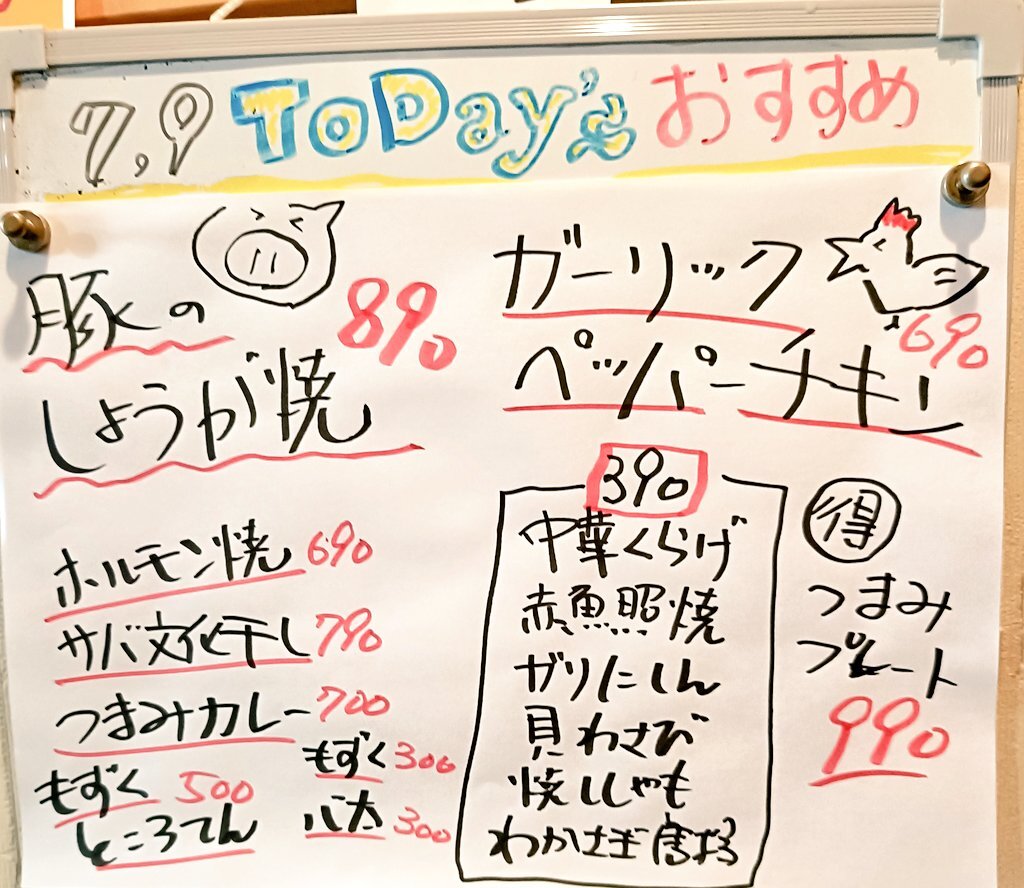 7,9 ToDay's おすすめ
豚の
しょうが焼 890
ガーリック
ペッパーチキン 690
ホルモン焼 690
サバ文化干し 790
つまみカレー 700
もずく 500
ところてん
もずく 300
八太 300
390
中華くらげ
赤魚照焼
ガリにしん
貝わさび
焼ししゃも
わかさぎ唐揚
得
つまみ
プレート
990